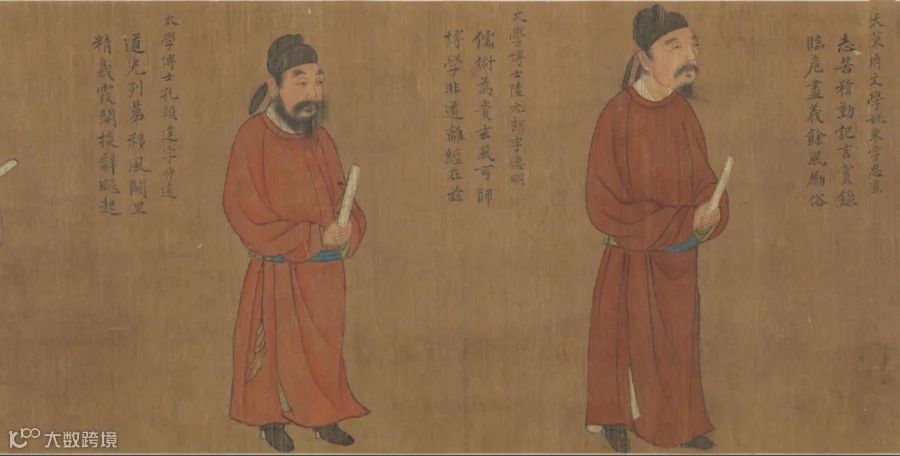 天策府文學姚柬字思廉
志苦精勤記言實錄
臨危盡義餘風勵俗
太學博士陸元朗字德明
儒術為貴玄風可師
博學非道離經在茲
太學博士孔穎達字仲達
道光列第移風闕里
精義霞開掞辭飈起
大数跨境